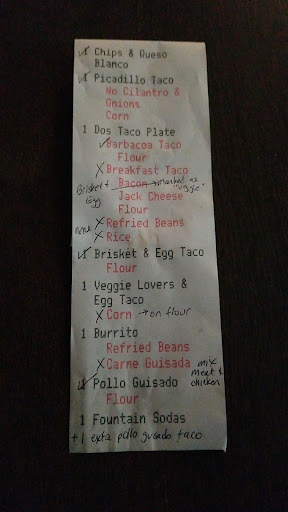 ✓1 Chips & Queso
Blanco
✓1 Picadillo Taco
No Cilantro &
Onions
Corn
1 Dos Taco Plate
✓Barbacoa Taco
Flour
X Breakfast Taco
Brisket + Egg Bacon → marked as "veggie"
Jack Cheese
Flour
none X Refried Beans
X Rice
✓1 Brisket & Egg Taco
Flour
1 Veggie Lovers &
Egg Taco
X Corn → on flour
1 Burrito
Refried Beans
X Carne Guisada mix meat & chicken
✓1 Pollo Guisado
Flour
1 Fountain Sodas
+1 exta pollo gusado taco